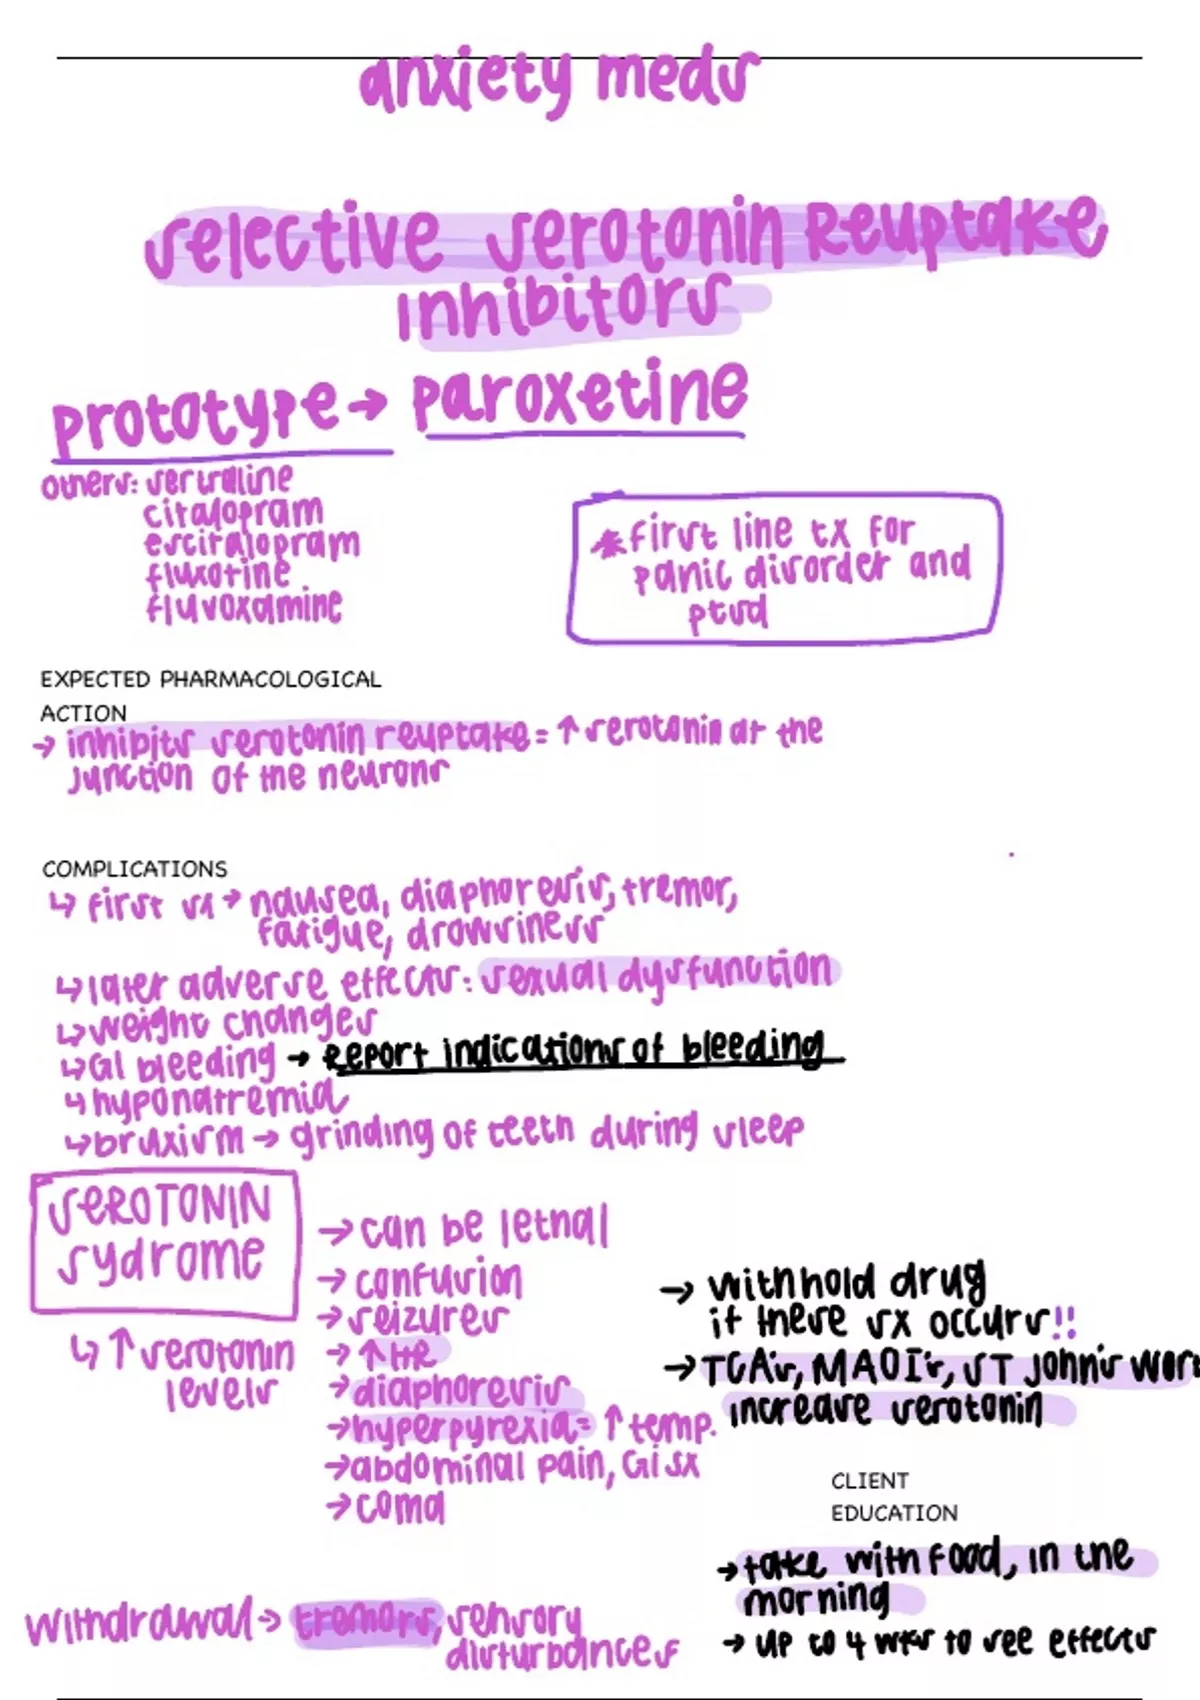 anxiety meds
selective serotonin Reuptake
Inhibitors
prototype → paroxetine
others: sertraline
citalopram
escitalopram
fluxotine
fluvoxamine
* first line tx for
panic disorder and
ptsd
EXPECTED PHARMACOLOGICAL
ACTION
→ inhibits serotonin reuptake = ↑ serotonin at the
junction of the neurons
COMPLICATIONS
↳ first sx → nausea, diaphoresis, tremor,
fatigue, drowsiness
↳ later adverse effects: sexual dysfunction
↳ weight changes
↳ GI bleeding → Report indications of bleeding
↳ hyponatremia
↳ bruxism → grinding of teeth during sleep
SEROTONIN
sydrome
↳ ↑ serotonin
levels
→ can be lethal
→ confusion
→ seizures
→ ↑ HR
→ diaphoresis
→ hyperpyrexia = ↑ temp.
→ abdominal pain, GI sx
→ coma
→ withhold drug
if these sx occurs!!
→ TCA's, MAOI's, ST John's Wort
increase serotonin
CLIENT
EDUCATION
→ take with food, in the
morning
→ up to 4 wks to see effects
withdrawal → tremors, sensory
disturbances